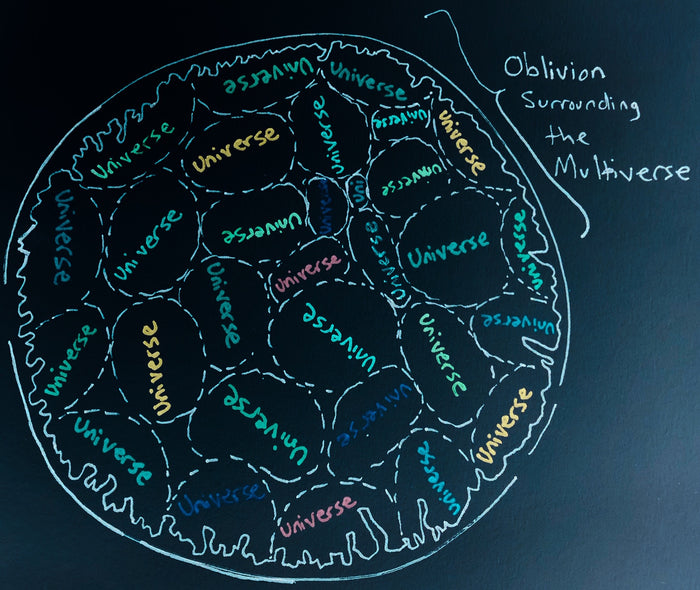 Oblivion
Surrounding
the
Multiverse
Universe
Universe
Universe
Universe
Universe
Universe
Universe
Universe
Universe
Uni
Universe
Universe
Universe
Universe
Universe
Universe
Universe
Universe
Universe
Universe
Universe
Universe
Universe
Universe
Universe
Universe
Universe
Universe
Universe
Universe